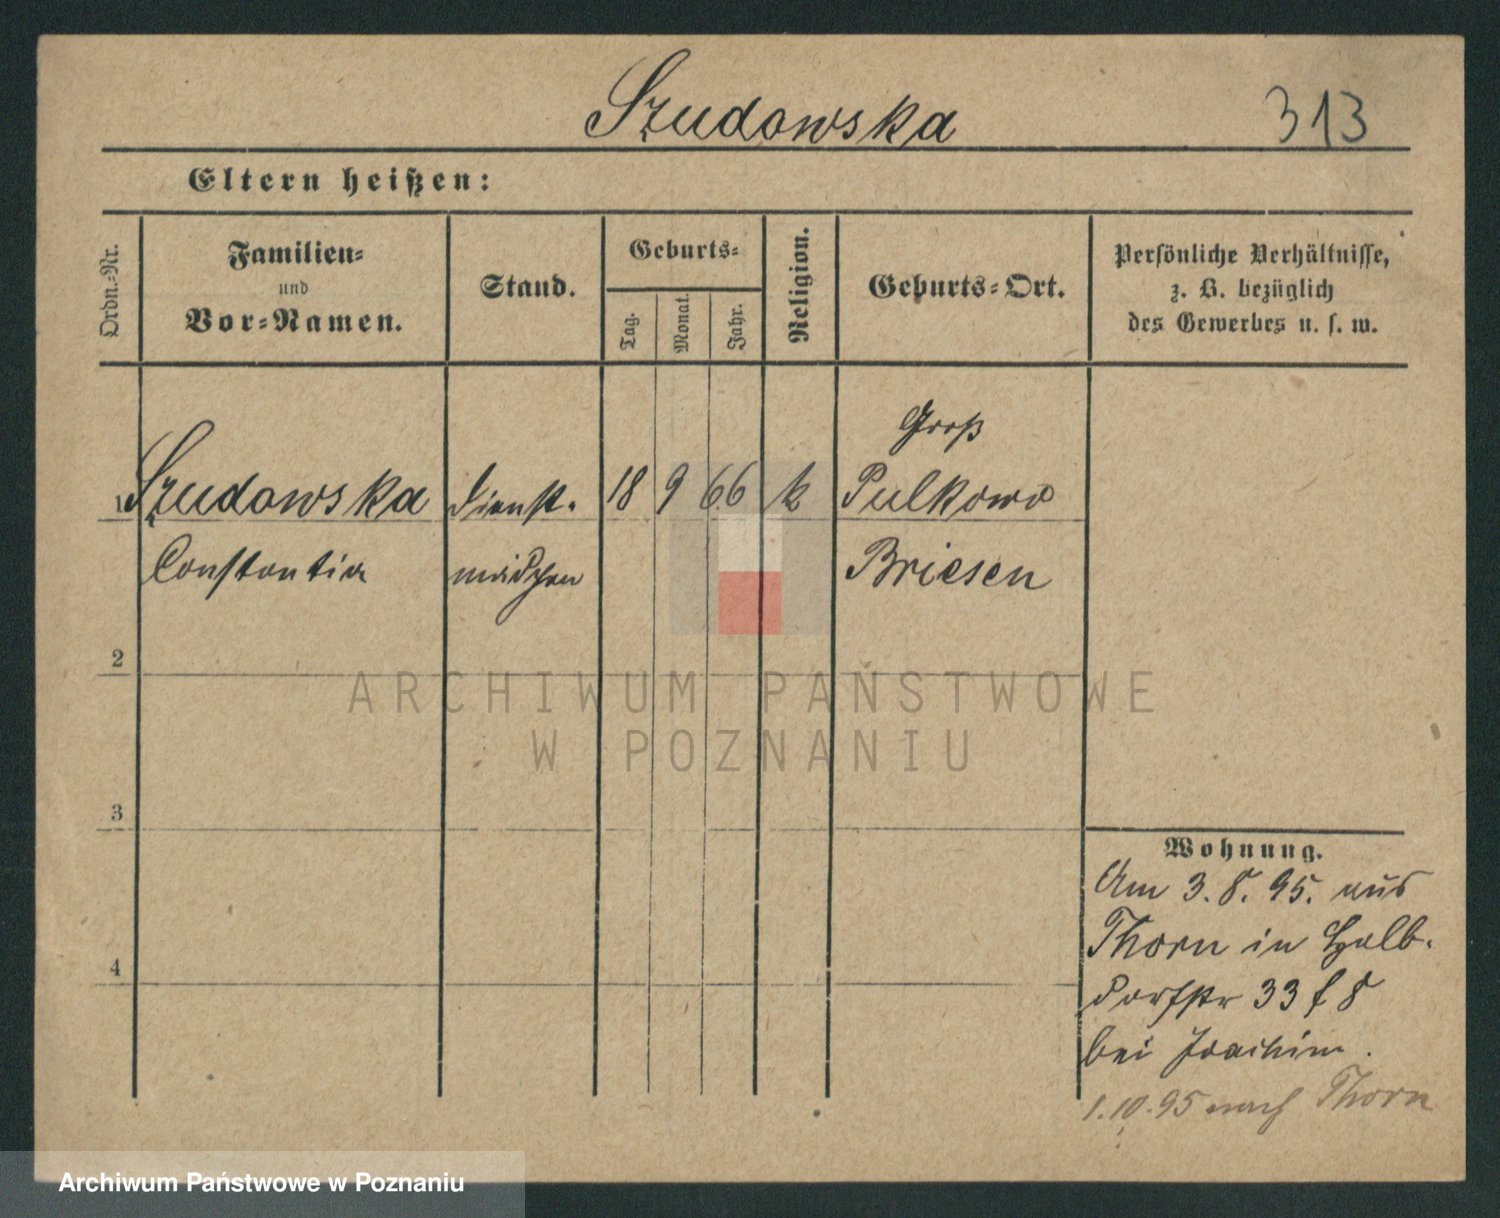 Szudowska
313
Eltern heißen:
Ordn.-Nr.
Familien-
und
Vor-Namen.
Stand.
Geburts-
Tag.
Monat.
Jahr.
Religion.
Geburts-Ort.
Persönliche Verhältnisse,
z. B. bezüglich
des Gewerbes u. s. w.
Groß
1 Szudowska Dienst- 18 9 66 k Pulkowo
Constantia mädchen Briesen
2
3
4
Wohnung.
Am 3. 8. 95. aus
Thorn in Halb-
dorfstr 33
bei Joachim.
1.10.95 nach Thorn
ARCHIWUM PAŃSTWOWE
W POZNANIU
Archiwum Państwowe w Poznaniu